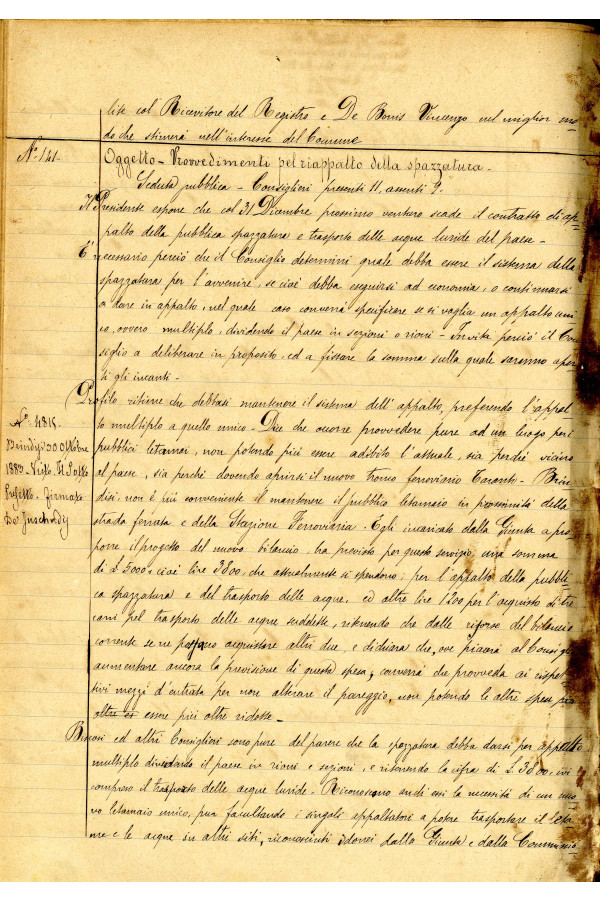 lite col Ricevitore del Registro e De Bonis Vincenzo nel miglior mo-
do che stimerà nell'interesse del Comune
N.° 141.
Oggetto - Provvedimenti pel riappalto della spazzatura -
Seduta pubblica - Consiglieri presenti 11, assenti 9.
Il Presidente espone che col 31 Dicembre prossimo venturo scade il contratto di ap-
palto della pubblica spazzatura e trasporto delle acque luride del paese -
È necessario perciò che il Consiglio determini quale debba essere il sistema della
spazzatura per l'avvenire, se cioè debba eseguirsi ad economia, o continuarsi
a dare in appalto, nel quale caso converrà specificare se si voglia un appalto uni
co, ovvero multiplo, dividendo il paese in sezioni o rioni - Invita perciò il Con
siglio a deliberare in proposito, ed a fissare la somma sulla quale saranno aper
ti gli incanti -
Profilo ritiene che debbasi mantenere il sistema dell'appalto, preferendo l'appal
to multiplo a quello unico - Dice che occorre provvedere pure ad un luogo pei
pubblici letamai, non potendo più essere adibito l'attuale, sia perchè vicino
al paese, sia perchè dovendo aprirsi il nuovo tronco ferroviario Taranto - Brin
disi non è più conveniente il mantenere il pubblico letamaio in prossimità della
strada ferrata e della Stazione Ferroviaria - Egli incaricato dalla Giunta a pro
porre il progetto del nuovo bilancio, ha previsto per questo servizio, una somma
di £ 5000, cioè lire 3800, che attualmente si spendono; per l'appalto della pubbli
ca spazzatura e del trasporto delle acque, ed altre lire 1200 per l'acquisto di tre
carri pel trasporto delle acque suddette, ritenendo che dalle risorse del bilancio
corrente se ne possano acquistare altri due, e dichiara che, ove piacerà al Consiglio
aumentare ancora la previsione di questa spesa, converrà che provveda ai rispet
tivi mezzi d'entrata per non alterare il pareggio, non potendo le altre spese
essere più oltre ridotte -
ed altri Consiglieri sono pure del parere che la spazzatura debba darsi per appalto
multiplo dividendo il paese in rioni e sezioni, e ritenendo la cifra di £ 3800, ivi
compreso il trasporto delle acque luride - Riconoscono anch'essi la necessità di un nuo
vo letamaio unico, pur facultando i singoli appaltatori a potere trasportare il leta-
me e le acque in altri siti, riconosciuti idonei dalla Giunta e dalla Commissio
N.° 4815.
Brindisi 30 Ottobre
1883 - Visto. Il Sotto
Prefetto - Firmato